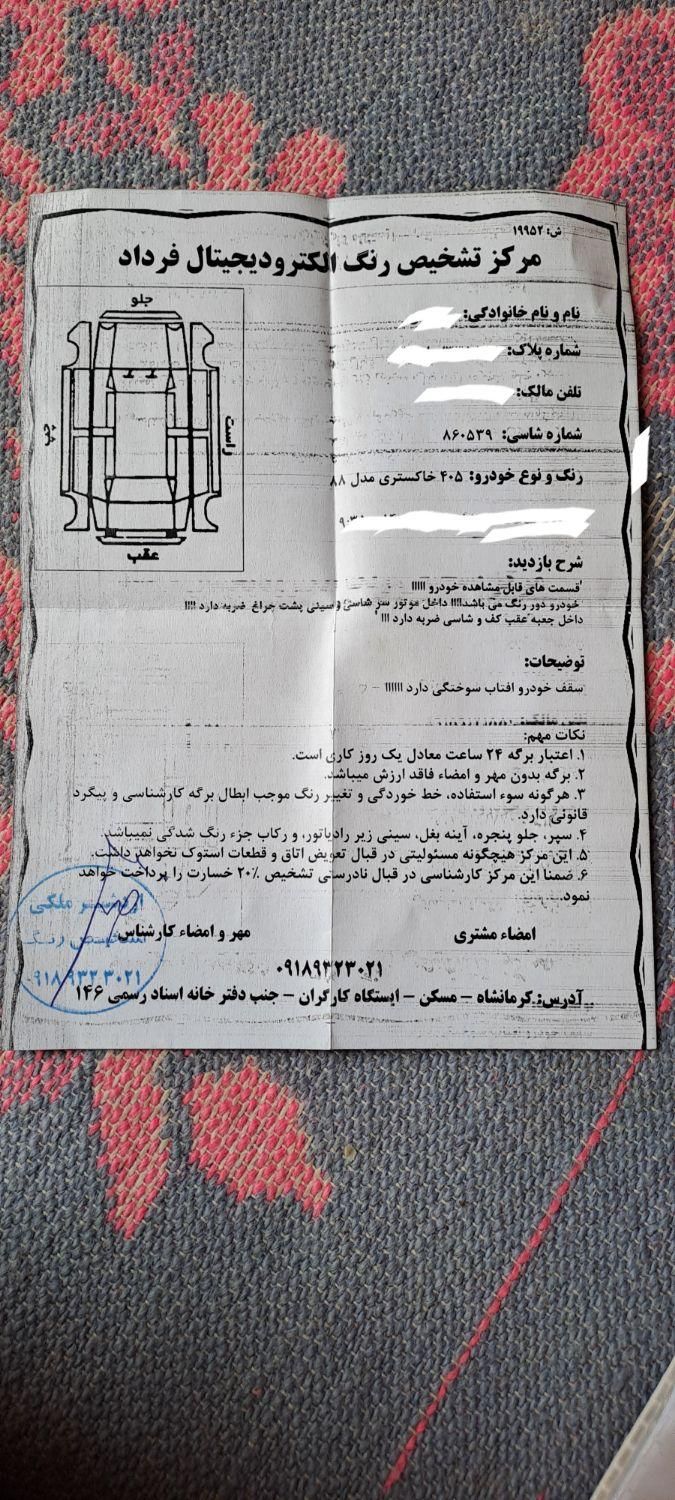 ش: ۱۹۹۵۲
مرکز تشخیص رنگ الکترودیجیتال فرداد
جلو
راست
چپ
عقب
نام و نام خانوادگی:
شماره پلاک:
تلفن مالک:
شماره شاسی: ۸۶۰۵۳۹
رنگ و نوع خودرو: ۴۰۵ خاکستری مدل ۸۸
شرح بازدید:
قسمت های قابل مشاهده خودرو !!!!!
خودرو دور رنگ می باشد!!!! داخل موتور سر شاسی و سینی پشت چراغ ضربه دارد !!!!
داخل جعبه عقب کف و شاسی ضربه دارد !!!
توضیحات:
سقف خودرو افتاب سوختگی دارد !!!!!!
نکات مهم:
۱. اعتبار برگه ۲۴ ساعت معادل یک روز کاری است.
۲. برگه بدون مهر و امضاء فاقد ارزش میباشد.
۳. هرگونه سوء استفاده، خط خوردگی و تغییر رنگ موجب ابطال برگه کارشناسی و پیگرد
قانونی دارد.
۴. سپر، جلو پنجره، آینه بغل، سینی زیر رادیاتور، و رکاب جزء رنگ شدگی نمیباشد.
۵. این مرکز هیچگونه مسئولیتی در قبال تعویض اتاق و قطعات استوک نخواهد داشت.
۶. ضمنا این مرکز کارشناسی در قبال نادرستی تشخیص ۲۰٪ خسارت را پرداخت خواهد
نمود.
امضاء مشتری
مهر و امضاء کارشناس
اردشیر ملکی
تشخیص رنگ
۰۹۱۸۹۳۲۳۰۲۱
۰۹۱۸۹۳۲۳۰۲۱
آدرس: کرمانشاه - مسکن - ایستگاه کارگران - جنب دفتر خانه اسناد رسمی ۱۴۶